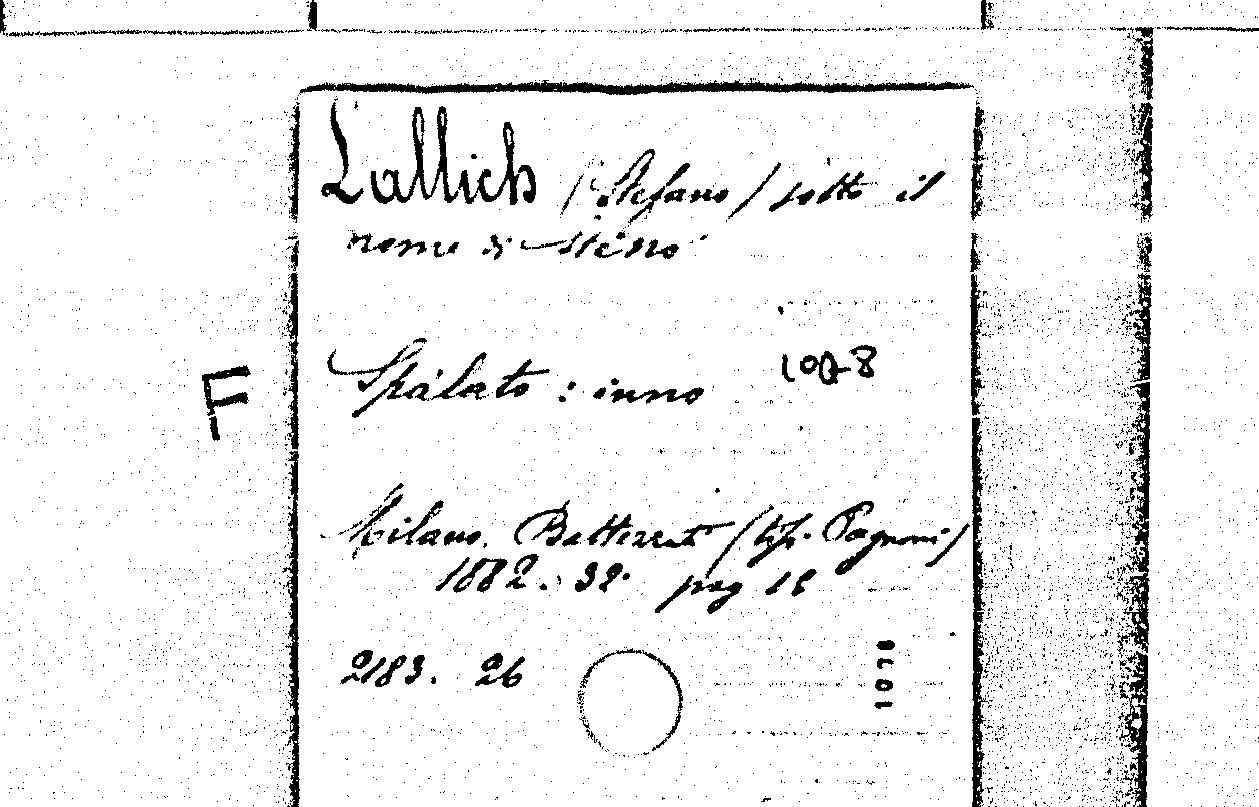 Lallich (Stefano) sotto il
nome di Steno
F
Spalato: inno 1078
Milano. Battezzati (tip. Pagnoni)
1882. 32° pag 16
2183. 26
1078